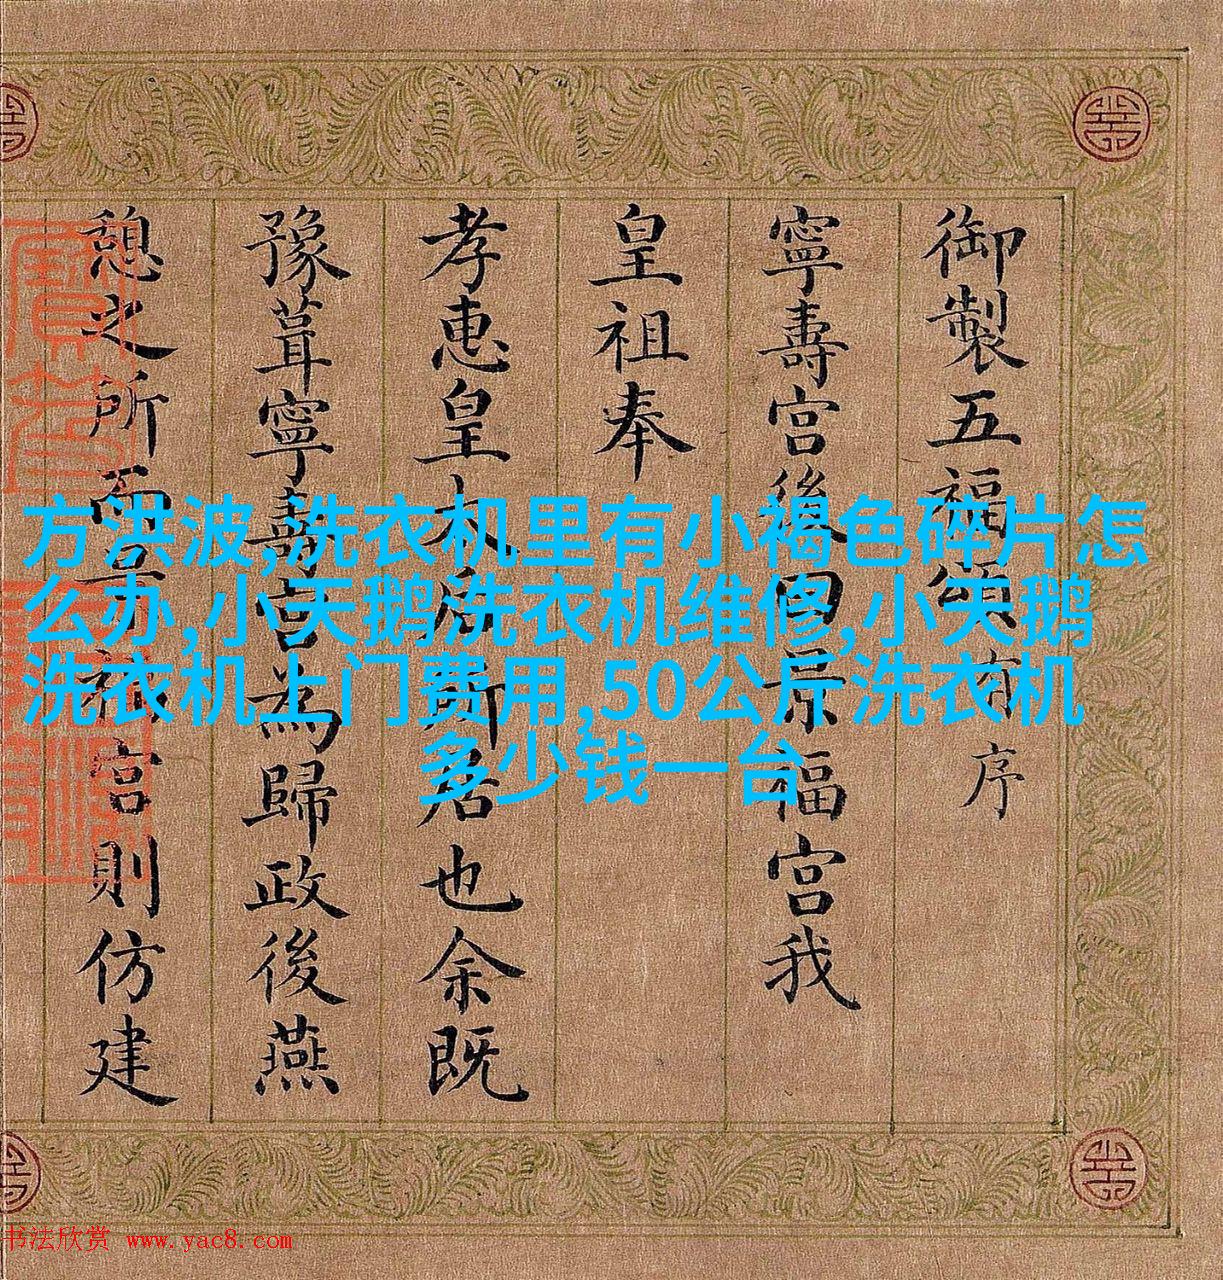 御製五福頌有序
寧壽宮後曰景福宮我
皇祖奉
孝惠皇太后所居也余既
豫葺寧壽宮為歸政後燕
憩之所而景福宮則仿建
方洪波,洗衣机里有小褐色碎片怎
么办,小天鹅洗衣机维修,小天鹅
洗衣机上门费用,50公斤洗衣机
多少钱一台
书法欣赏 www.yac8.com